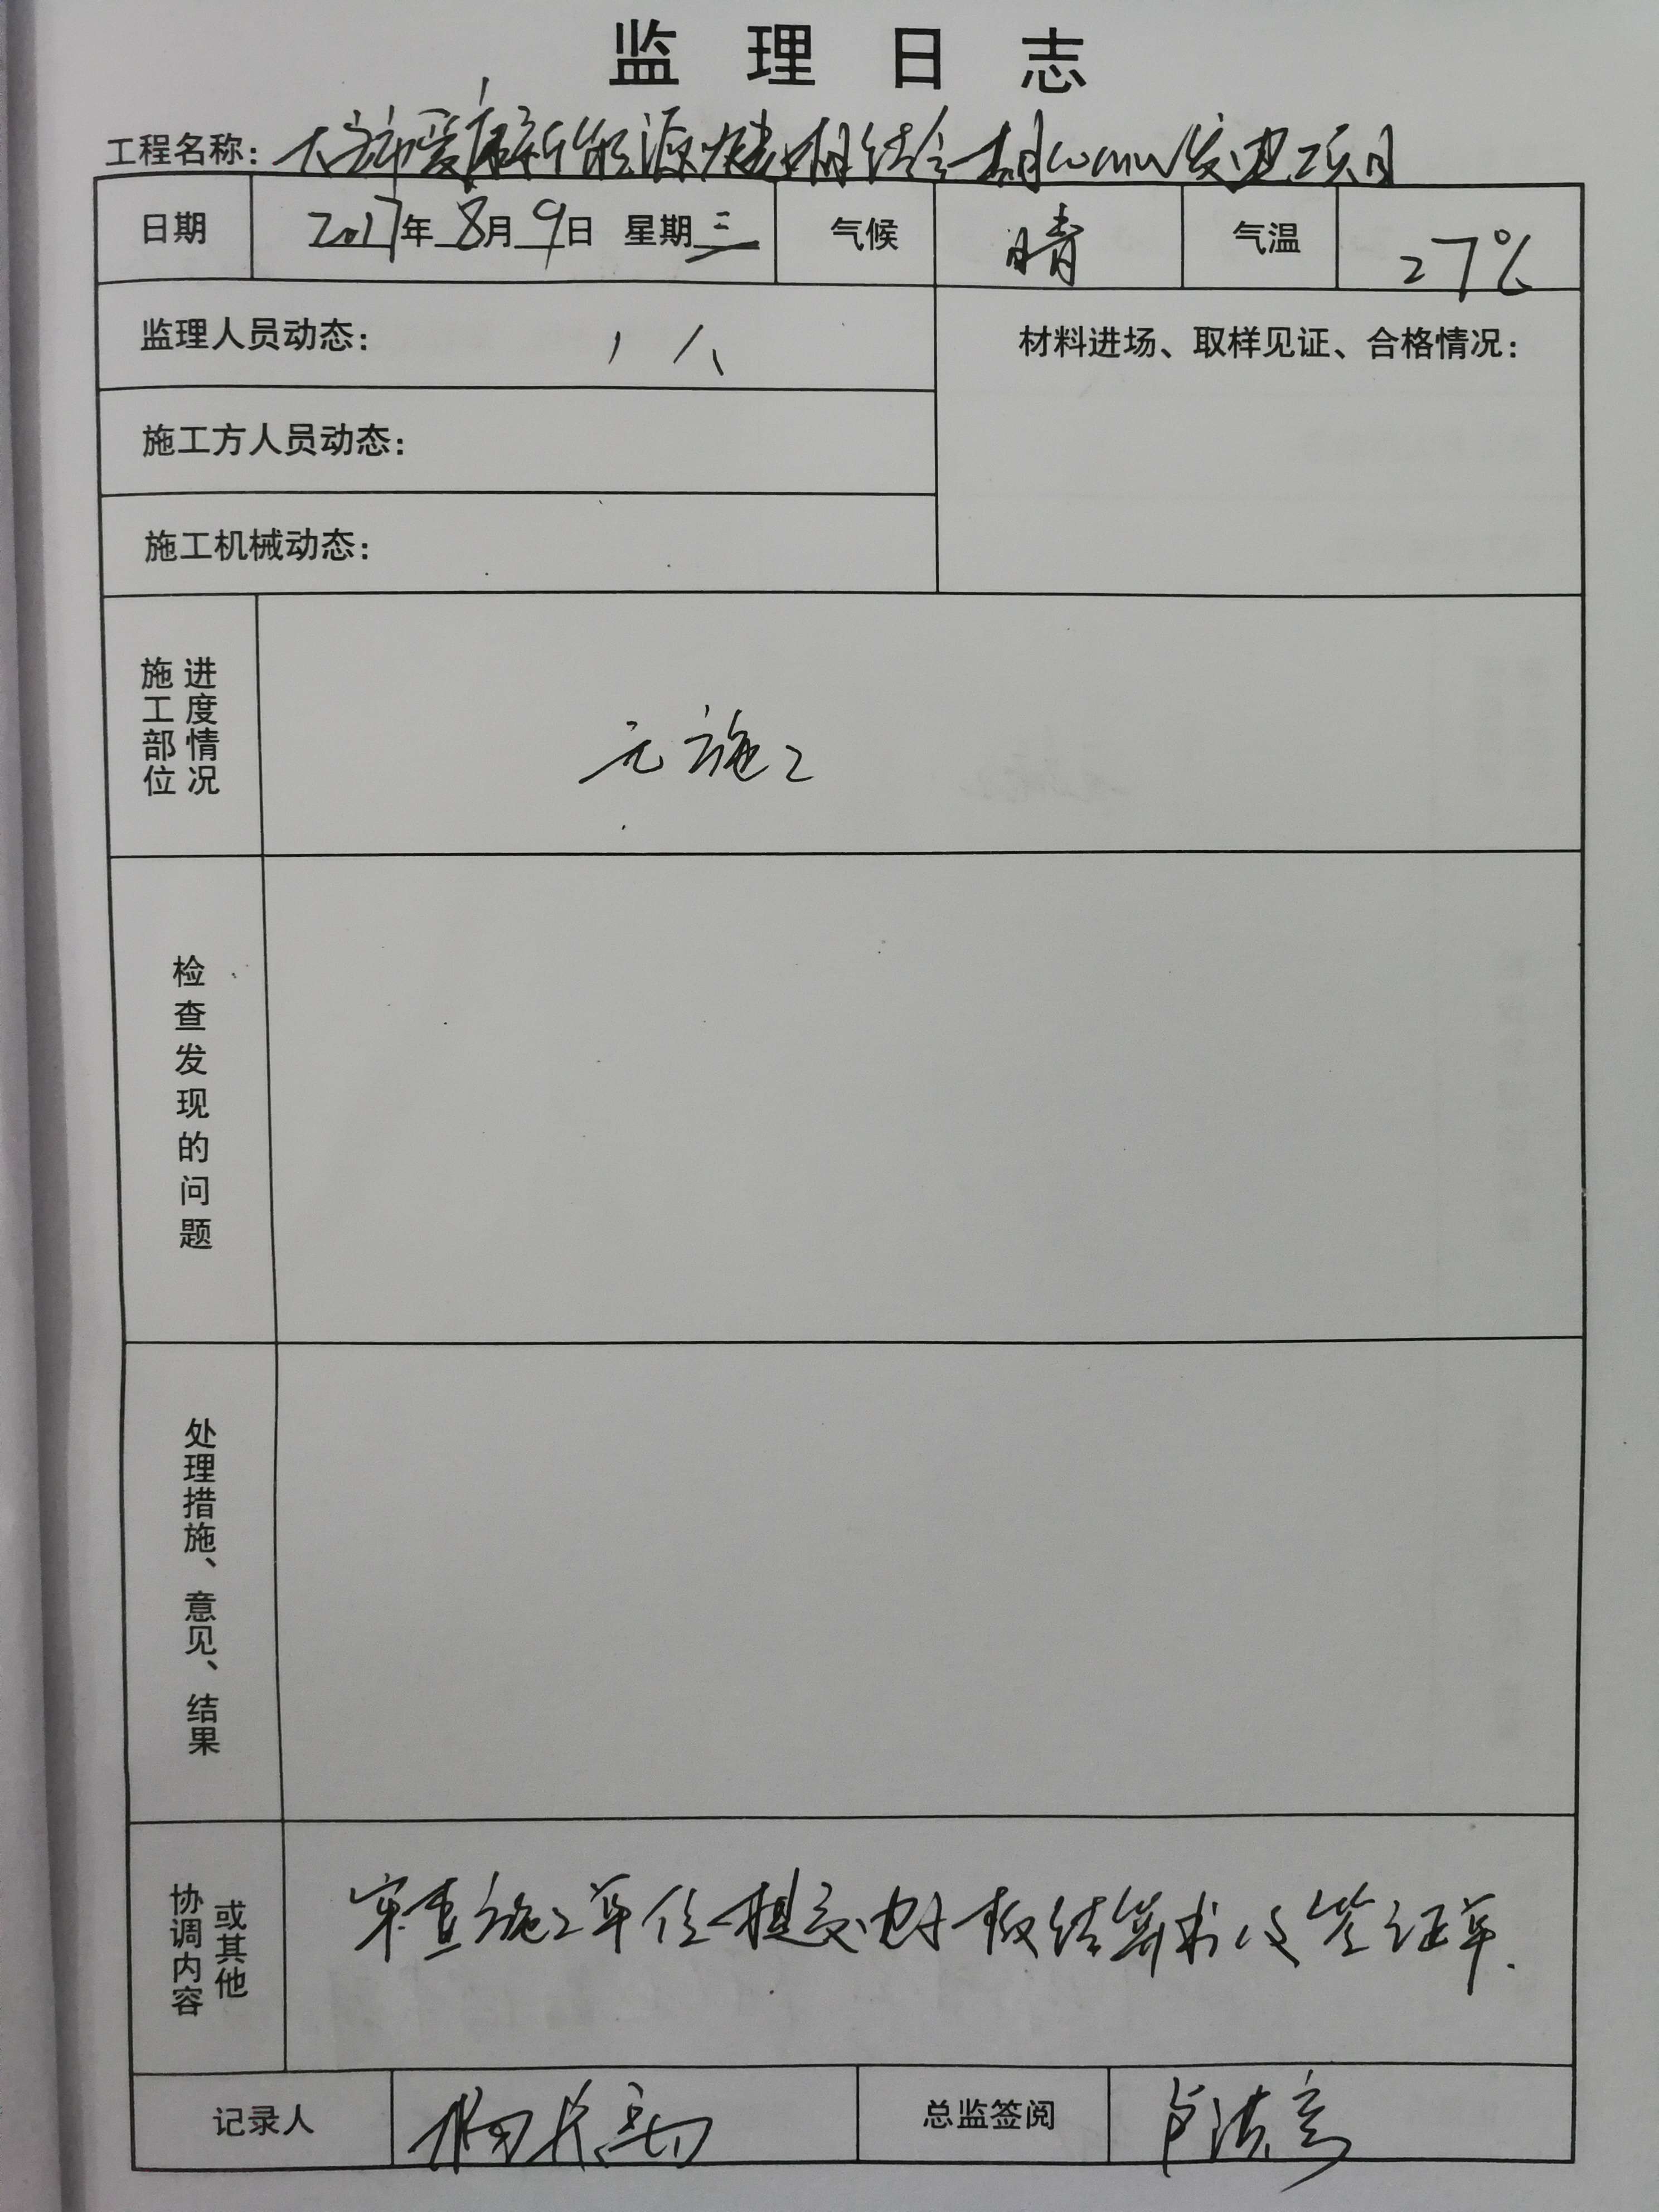 监理日志
工程名称: 大安市爱康新能源 结合 发电项目
日期 2017年8月9日 星期三 气候 晴 气温 27℃
监理人员动态: 1人 材料进场、取样见证、合格情况:
施工方人员动态:
施工机械动态:
施工部位 进度情况 无施工
检查发现的问题
处理措施、意见、结果
协调内容 或其他 审查施工单位提交 结算书及签证单.
记录人 杨 总监签阅 卢